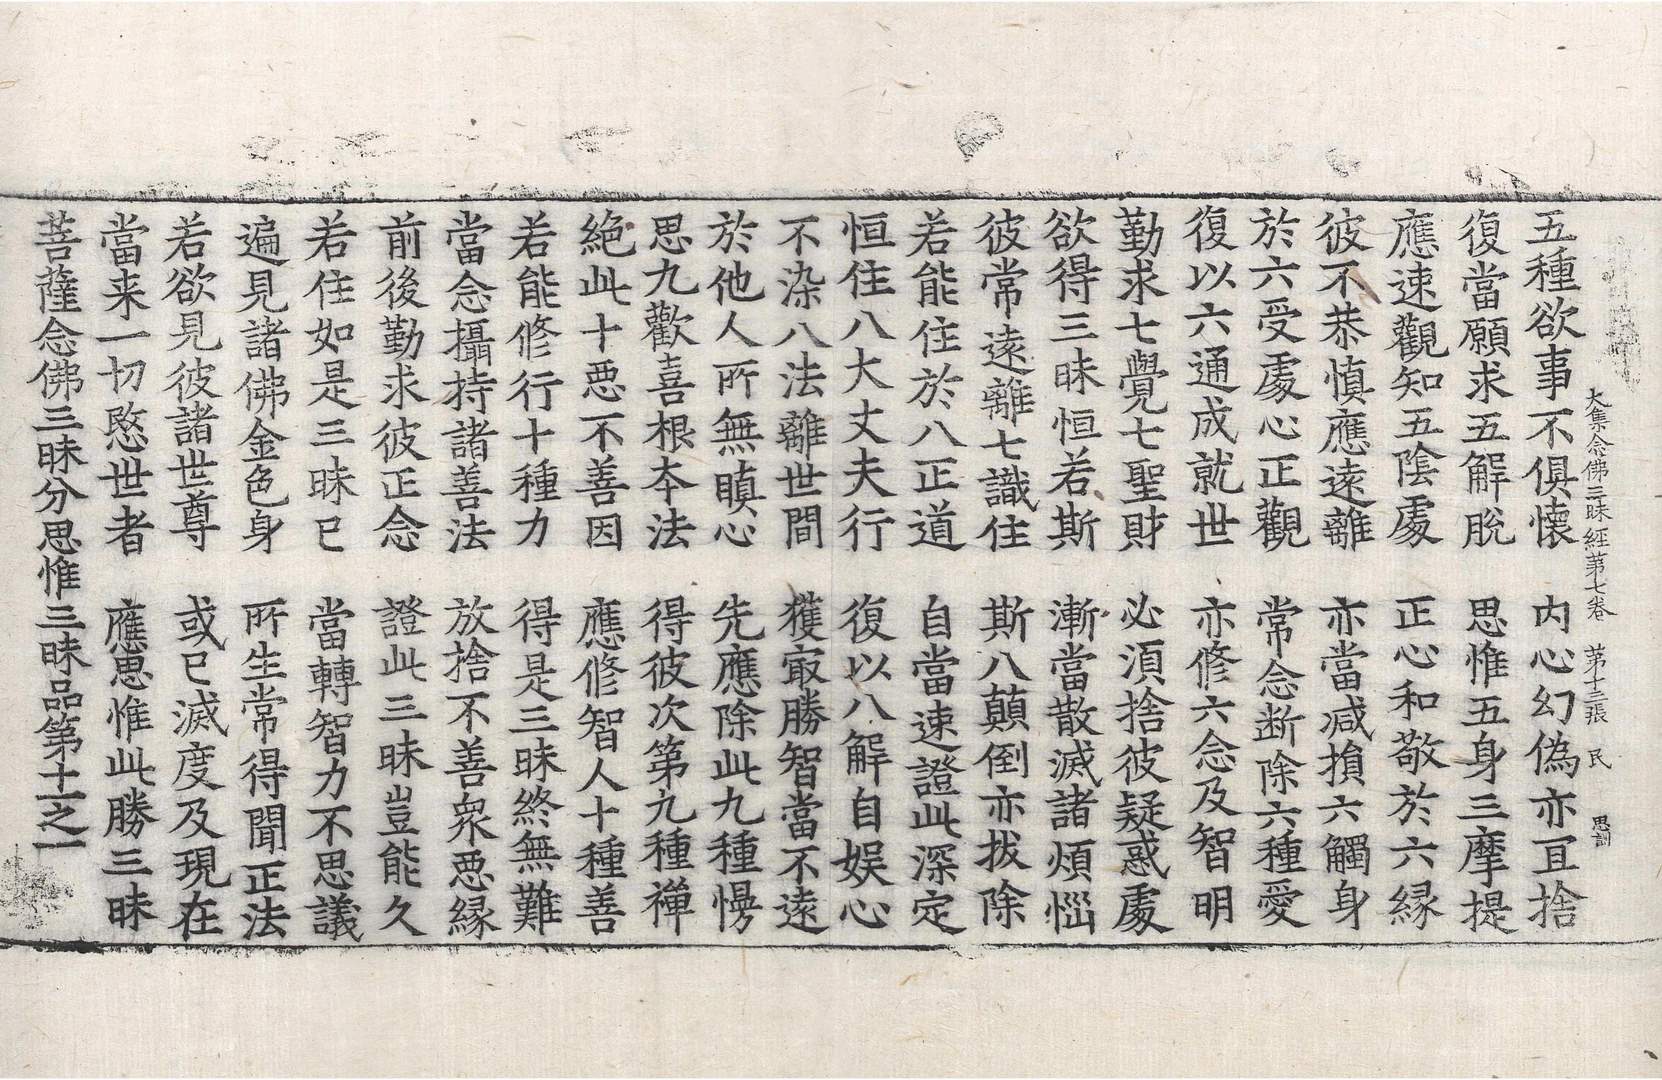 大集念佛三昧經第七卷　第十三張　民　思訓
五種欲事不俱懷　内心幻偽亦宜捨
復當願求五解脫　思惟五身三摩提
應速觀知五陰處　正心和敬於六縁
彼不恭慎應遠離　亦當減損六觸身
於六受處心正觀　常念断除六種愛
復以六通成就世　亦修六念及智明
勤求七覺七聖財　必須捨彼疑惑處
欲得三昧恒若斯　漸當散滅諸煩惱
彼常遠離七識住　斯八顛倒亦拔除
若能住於八正道　自當速證此深定
恒住八大丈夫行　復以八解自娱心
不染八法離世間　獲㝡勝智當不遠
於他人所無瞋心　先應除此九種慢
思九歡喜根夲法　得彼次第九種禪
絶此十惡不善因　應修智人十種善
若能修行十種力　得是三昧終無難
當念攝持諸善法　放捨不善衆惡縁
前後勤求彼正念　證此三昧豈能久
若住如是三昧已　當轉智力不思議
遍見諸佛金色身　所生常得聞正法
若欲見彼諸世尊　或已滅度及現在
當来一切愍世者　應思惟此勝三昧
菩薩念佛三昧分思惟三昧品第十一之一